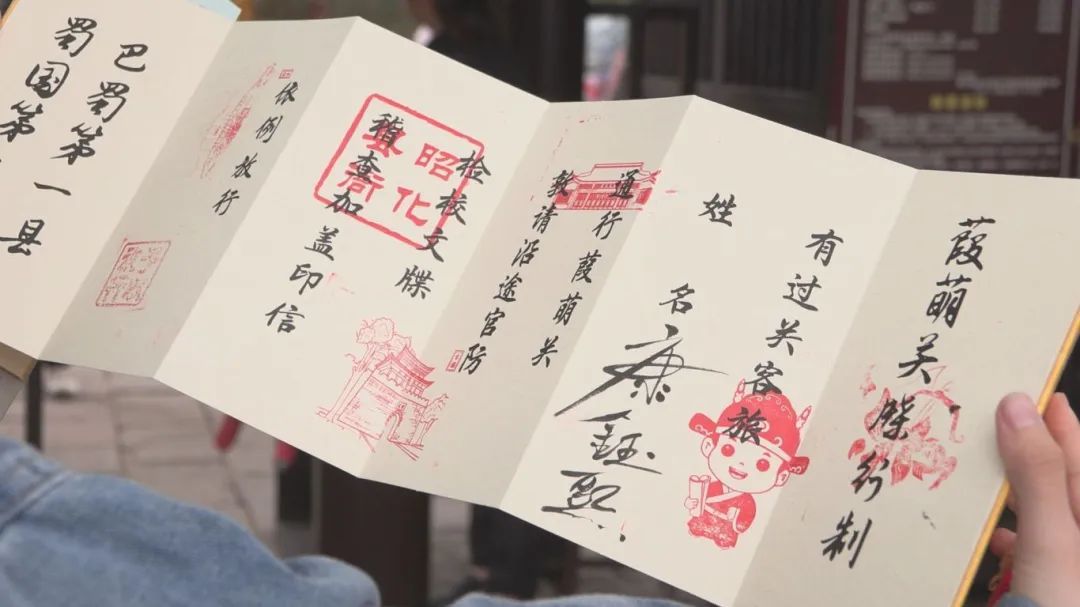 葭萌关牒行制
有过关客旅
姓名 康鈺熙
通行葭萌关
敦请沿途官防
检校文牒
稽查加盖印信
昭化县衙
依例放行
巴蜀第一县
蜀国第